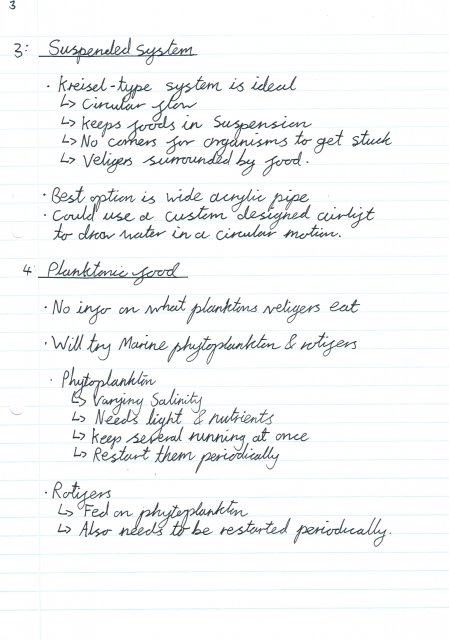 3
3: Suspended system
· Kreisel-type system is ideal
↳ Circular flow
↳ Keeps foods in suspension
↳ No corners for organisms to get stuck
↳ Veligers surrounded by food.
· Best option is wide acrylic pipe
· Could use a custom designed airlift
to draw water in a circular motion.
4: Planktonic food
· No info on what planktons veligers eat
· Will try Marine phytoplankton & rotifers
· Phytoplankton
↳ Varying Salinity
↳ Needs light & nutrients
↳ Keep several running at once
↳ Restart them periodically
· Rotifers
↳ Fed on phytoplankton
↳ Also needs to be restarted periodically.